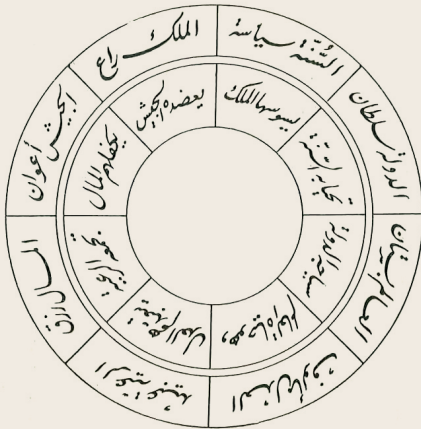 العالم بستان
سياجه الدولة
الدولة سلطان
تحيا به السنة
السُّنّة سياسة
يسوسها الملك
الملك راع
يعضده الجيش
الجيش أعوان
يكفلهم المال
المال رزق
تجمعه الرعية
الرعية عبيد
العدل
العدل مألوف
وهو حياة العالم